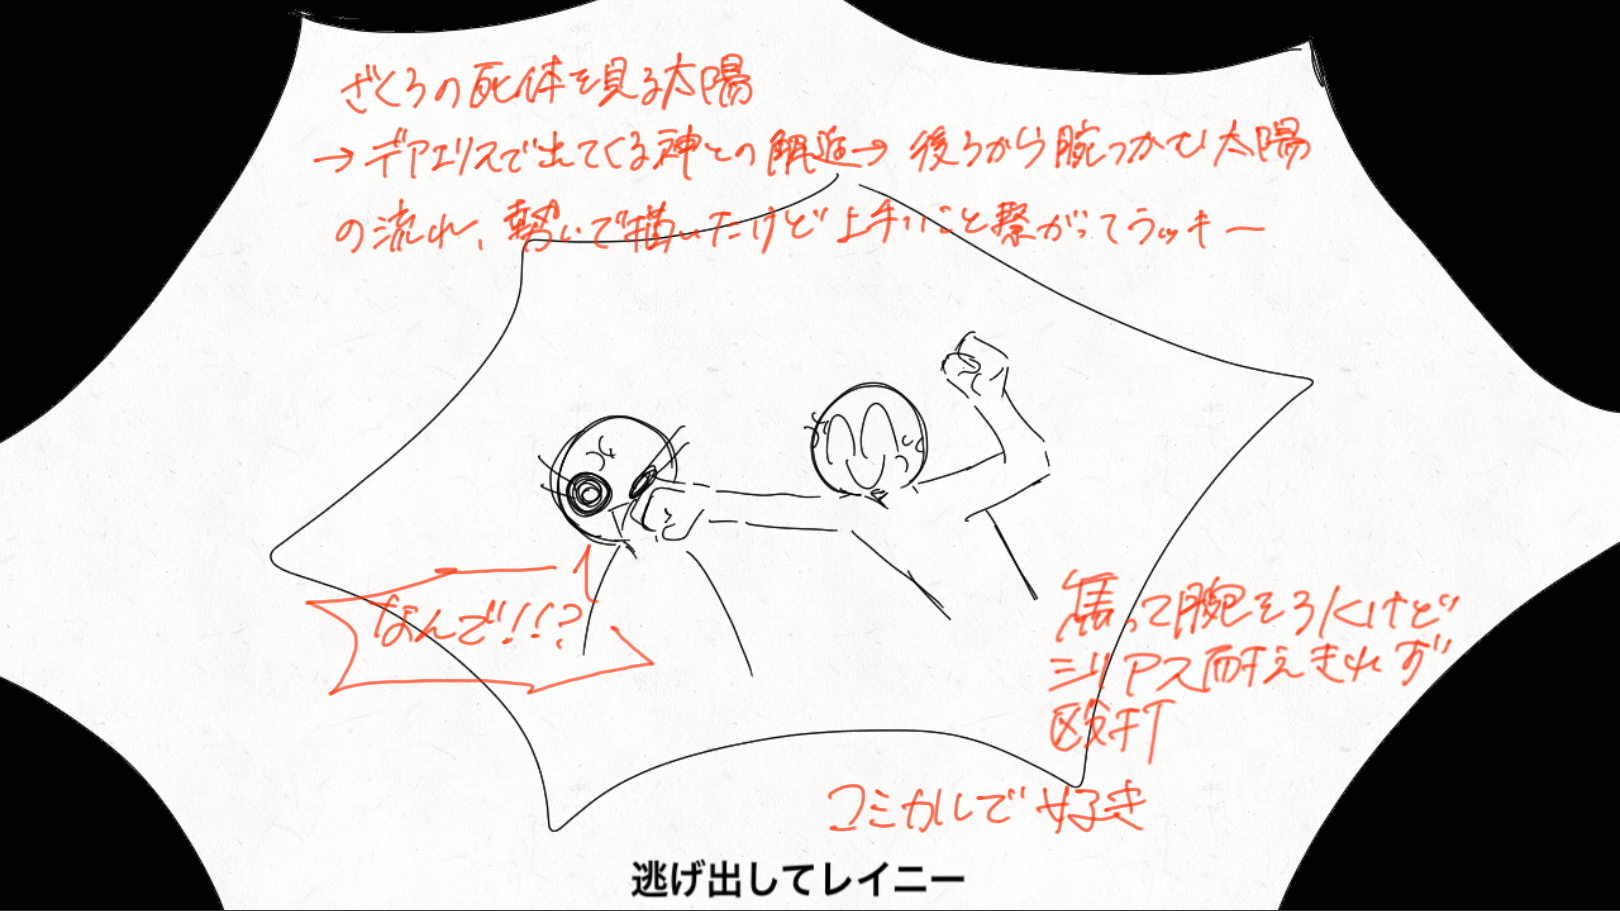 ざくろの死体を見る太陽
→デアエリスで出てくる神との解逅→後ろから腕つかむ太陽
の流れ、勢いで描いたけど上手いこと繋がってラッキー
なんで!!?
焦って腕をろくけど
シリアス耐えきれず
殴打
コミカルで好き
逃げ出してレイニー